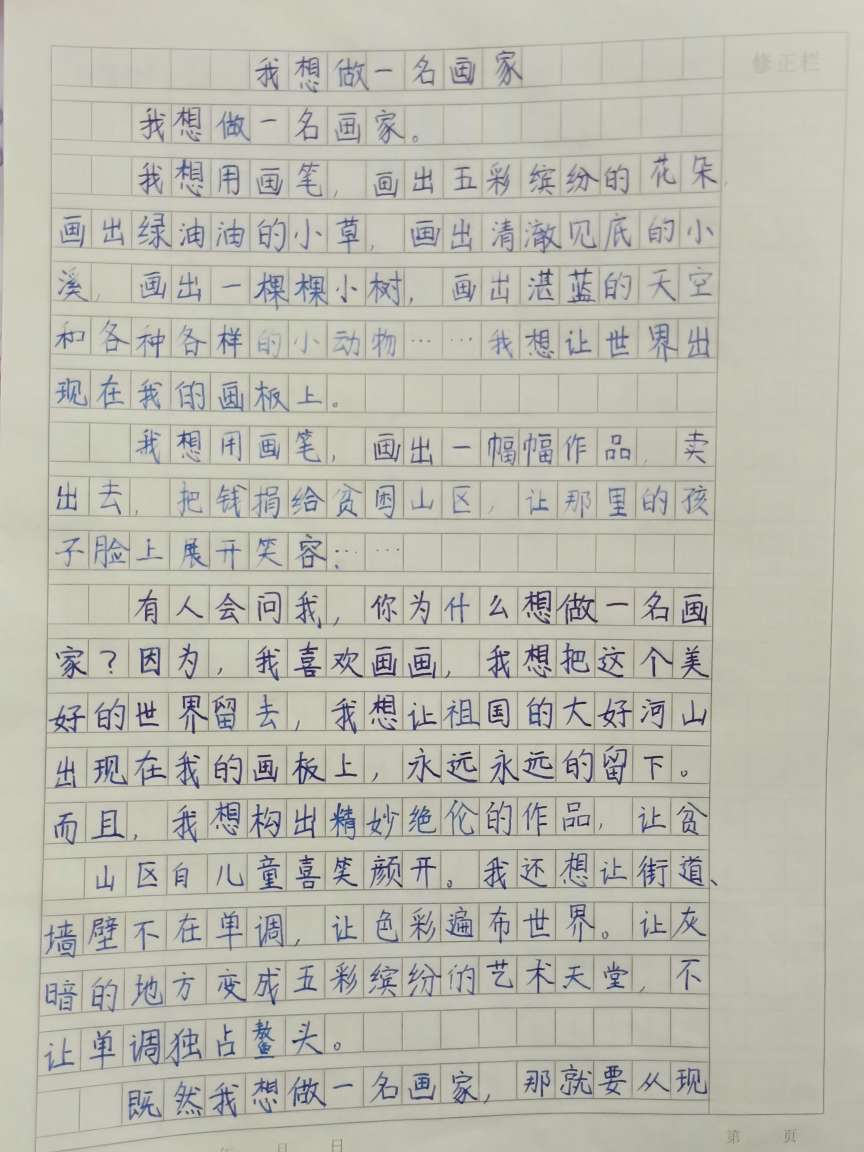 修正栏
我想做一名画家
我想做一名画家。
我想用画笔，画出五彩缤纷的花朵，
画出绿油油的小草，画出清澈见底的小
溪，画出一棵棵小树，画出湛蓝的天空
和各种各样的小动物……我想让世界出
现在我的画板上。
我想用画笔，画出一幅幅作品，卖
出去，把钱捐给贫困山区，让那里的孩
子脸上展开笑容……
有人会问我，你为什么想做一名画
家？因为，我喜欢画画，我想把这个美
好的世界留去，我想让祖国的大好河山
出现在我的画板上，永远永远的留下。
而且，我想构出精妙绝伦的作品，让贫
山区自儿童喜笑颜开。我还想让街道、
墙壁不在单调，让色彩遍布世界。让灰
暗的地方变成五彩缤纷的艺术天堂，不
让单调独占鳌头。
既然我想做一名画家，那就要从现
年 月 日
第 页